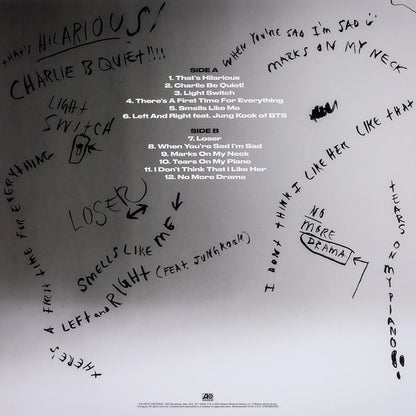 THAT'S HILARIOUS!
CHARLIE B QUIET!!!!
LIGHT
SWITCH
WHEN YOU'RE SAD I'M SAD
MARKS ON MY NECK
SIDE A
1. That's Hilarious
2. Charlie Be Quiet!
3. Light Switch
4. There's A First Time For Everything
5. Smells Like Me
6. Left And Right feat. Jung Kook of BTS
SIDE B
7. Loser
8. When You're Sad I'm Sad
9. Marks On My Neck
10. Tears On My Piano
11. I Don't Think That I Like Her
12. No More Drama
LOSER
THERE'S A FIRST TIME FOR EVERYTHING
SMELLS LIKE ME
LEFT and RIGHT (FEAT. JUNGKOOK)
I DON'T THINK I LIKE HER LIKE THAT
NO
MORE
DRAMA
TEARS ON MY PIANO!!